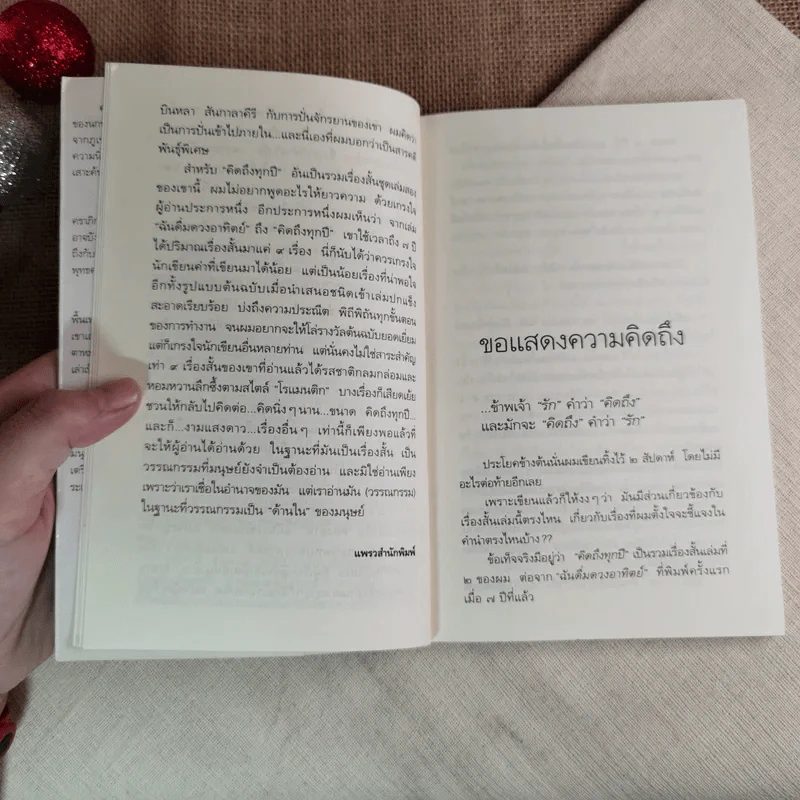 ของนก
จากภูเ
ความนึ
เสาะค้น
คราภิก
อาจบัง
ถึงกับ
พุทธค
บินหลา สันกาลาคีรี กับการปั่นจักรยานของเขา ผมคิดว่า
เป็นการปั่นเข้าไปภายใน...และนี่เองที่ผมบอกว่าเป็นสารคดี
พันธุ์พิเศษ
สำหรับ “คิดถึงทุกปี” อันเป็นรวมเรื่องสั้นชุดเล่มสอง
ของเขานี้ ผมไม่อยากพูดอะไรให้ยาวความ ด้วยเกรงใจ
ผู้อ่านประการหนึ่ง อีกประการหนึ่งผมเห็นว่า จากเล่ม
“ฉันดื่มดวงอาทิตย์” ถึง “คิดถึงทุกปี” เขาใช้เวลาถึง ๗ ปี
ได้ปริมาณเรื่องสั้นมาแค่ ๙ เรื่อง นี่ก็นับได้ว่าควรเกรงใจ
นักเขียนค่าที่เขียนมาได้น้อย แต่เป็นน้อยเรื่องที่น่าพอใจ
อีกทั้งรูปแบบต้นฉบับเมื่อนำเสนอชนิดเข้าเล่มปกแข็ง
สะอาดเรียบร้อย บ่งถึงความประณีต พิถีพิถันทุกขั้นตอน
ของการทำงาน จนผมอยากจะให้โล่รางวัลต้นฉบับยอดเยี่ยม
แต่ก็เกรงใจนักเขียนอื่นหลายท่าน แต่นั่นคงไม่ใช่สาระสำคัญ
เท่า ๙ เรื่องสั้นของเขาที่อ่านแล้วได้รสชาติกลมกล่อมและ
หอมหวานลึกซึ้งตามสไตล์ “โรแมนติก” บางเรื่องก็เสียดเย้ย
ชวนให้กลับไปคิดต่อ...คิดนิ่งๆ นาน...ขนาด คิดถึงทุกปี...
และก็...งามแสงดาว...เรื่องอื่นๆ เท่านี้ก็เพียงพอแล้วที่
จะให้ผู้อ่านได้อ่านด้วย ในฐานะที่มันเป็นเรื่องสั้น เป็น
วรรณกรรมที่มนุษย์ยังจำเป็นต้องอ่าน และมิใช่อ่านเพียง
เพราะว่าเราเชื่อในอำนาจของมัน แต่เราอ่านมัน (วรรณกรรม)
ในฐานะที่วรรณกรรมเป็น “ด้านใน” ของมนุษย์
แพรวสำนักพิมพ์
ขอแสดงความคิดถึง
...ข้าพเจ้า “รัก” คำว่า “คิดถึง”
และมักจะ “คิดถึง” คำว่า “รัก”
ประโยคข้างต้นนั่นผมเขียนทิ้งไว้ ๒ สัปดาห์ โดยไม่มี
อะไรต่อท้ายอีกเลย
เพราะเขียนแล้วก็ให้งงๆ ว่า มันมีส่วนเกี่ยวข้องกับ
เรื่องสั้นเล่มนี้ตรงไหน เกี่ยวกับเรื่องที่ผมตั้งใจจะชี้แจงใน
คำนำตรงไหนบ้าง??
ข้อเท็จจริงมีอยู่ว่า “คิดถึงทุกปี” เป็นรวมเรื่องสั้นเล่มที่
๒ ของผม ต่อจาก “ฉันดื่มดวงอาทิตย์” ที่พิมพ์ครั้งแรก
เมื่อ ๗ ปีที่แล้ว